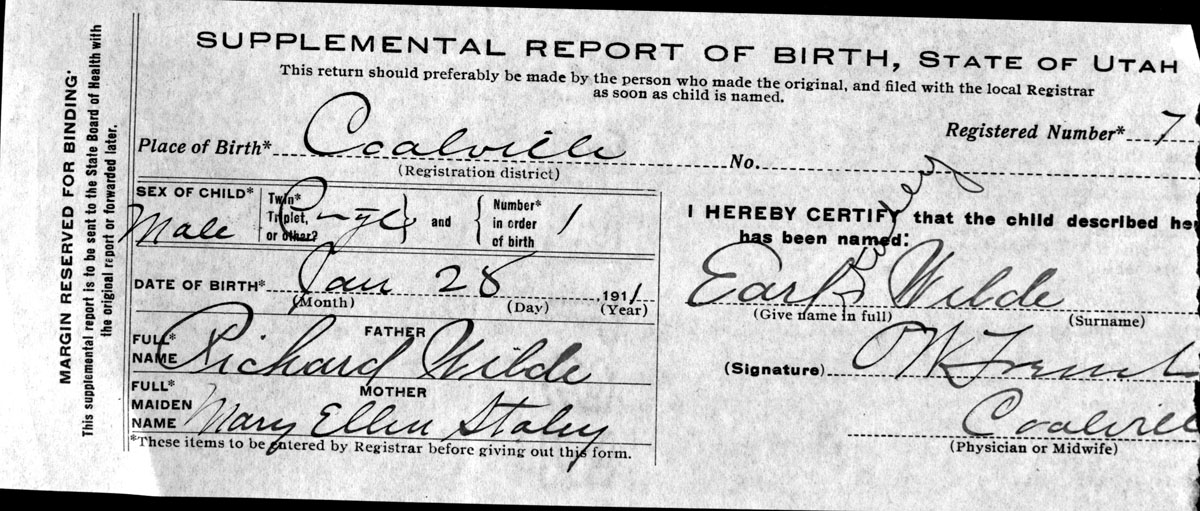 MARGIN RESERVED FOR BINDING.
This supplemental report is to be sent to the State Board of Health with
the original report or forwarded later.
SUPPLEMENTAL REPORT OF BIRTH, STATE OF UTAH
This return should preferably be made by the person who made the original, and filed with the local Registrar
as soon as child is named.
Registered Number* 7
Place of Birth* Coalville No.
(Registration district)
SEX OF CHILD* Male
Twin*
Triplet,
or other?
Single
and
Number*
in order
of birth
1
DATE OF BIRTH* Jan 28, 1911
(Month) (Day) (Year)
FATHER
FULL*
NAME Richard Wilde
MOTHER
FULL*
MAIDEN
NAME Mary Ellen Staley
*These items to be entered by Registrar before giving out this form.
I HEREBY CERTIFY that the child described he
has been named:
Earl Staley Wilde
(Give name in full) (Surname)
(Signature)
Coalvill
(Physician or Midwife)